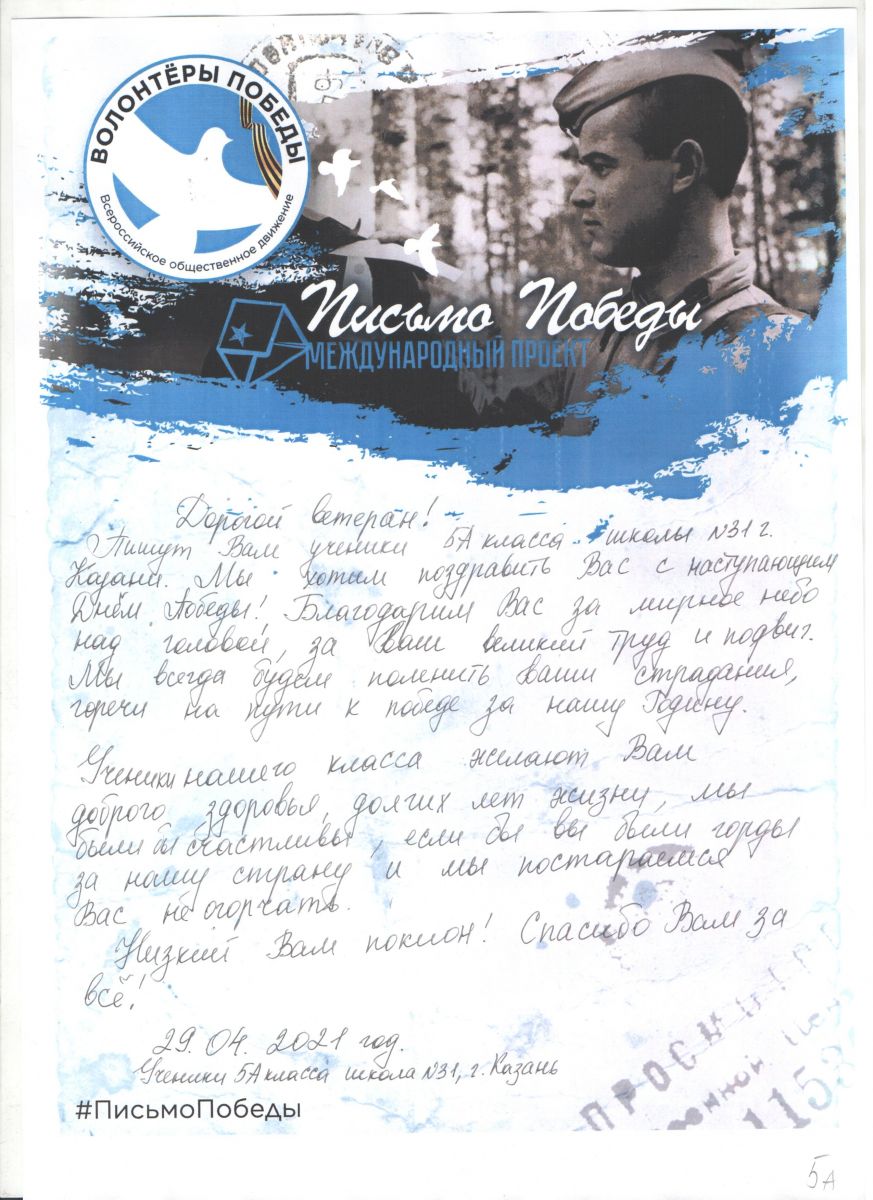 ВОЛОНТЁРЫ ПОБЕДЫ
Всероссийское общественное движение
Письмо Победы
МЕЖДУНАРОДНЫЙ ПРОЕКТ
Дорогой ветеран!
Пишут Вам ученики 5А класса школы №31 г.
Казани. Мы хотим поздравить Вас с наступающим
Днём Победы! Благодарим Вас за мирное небо
над головой, за Ваш великий труд и подвиг.
Мы всегда будем помнить Ваши страдания,
горечи на пути к победе за нашу Родину.
Ученики нашего класса желают Вам
доброго здоровья, долгих лет жизни, мы
были бы счастливы, если бы вы были горды
за нашу страну и мы постараемся
Вас не огорчать.
Низкий Вам поклон! Спасибо Вам за
всё!
29.04.2021 год.
Ученики 5А класса школа №31, г. Казань
#ПисьмоПобеды
ПРОСМ
1153
5А